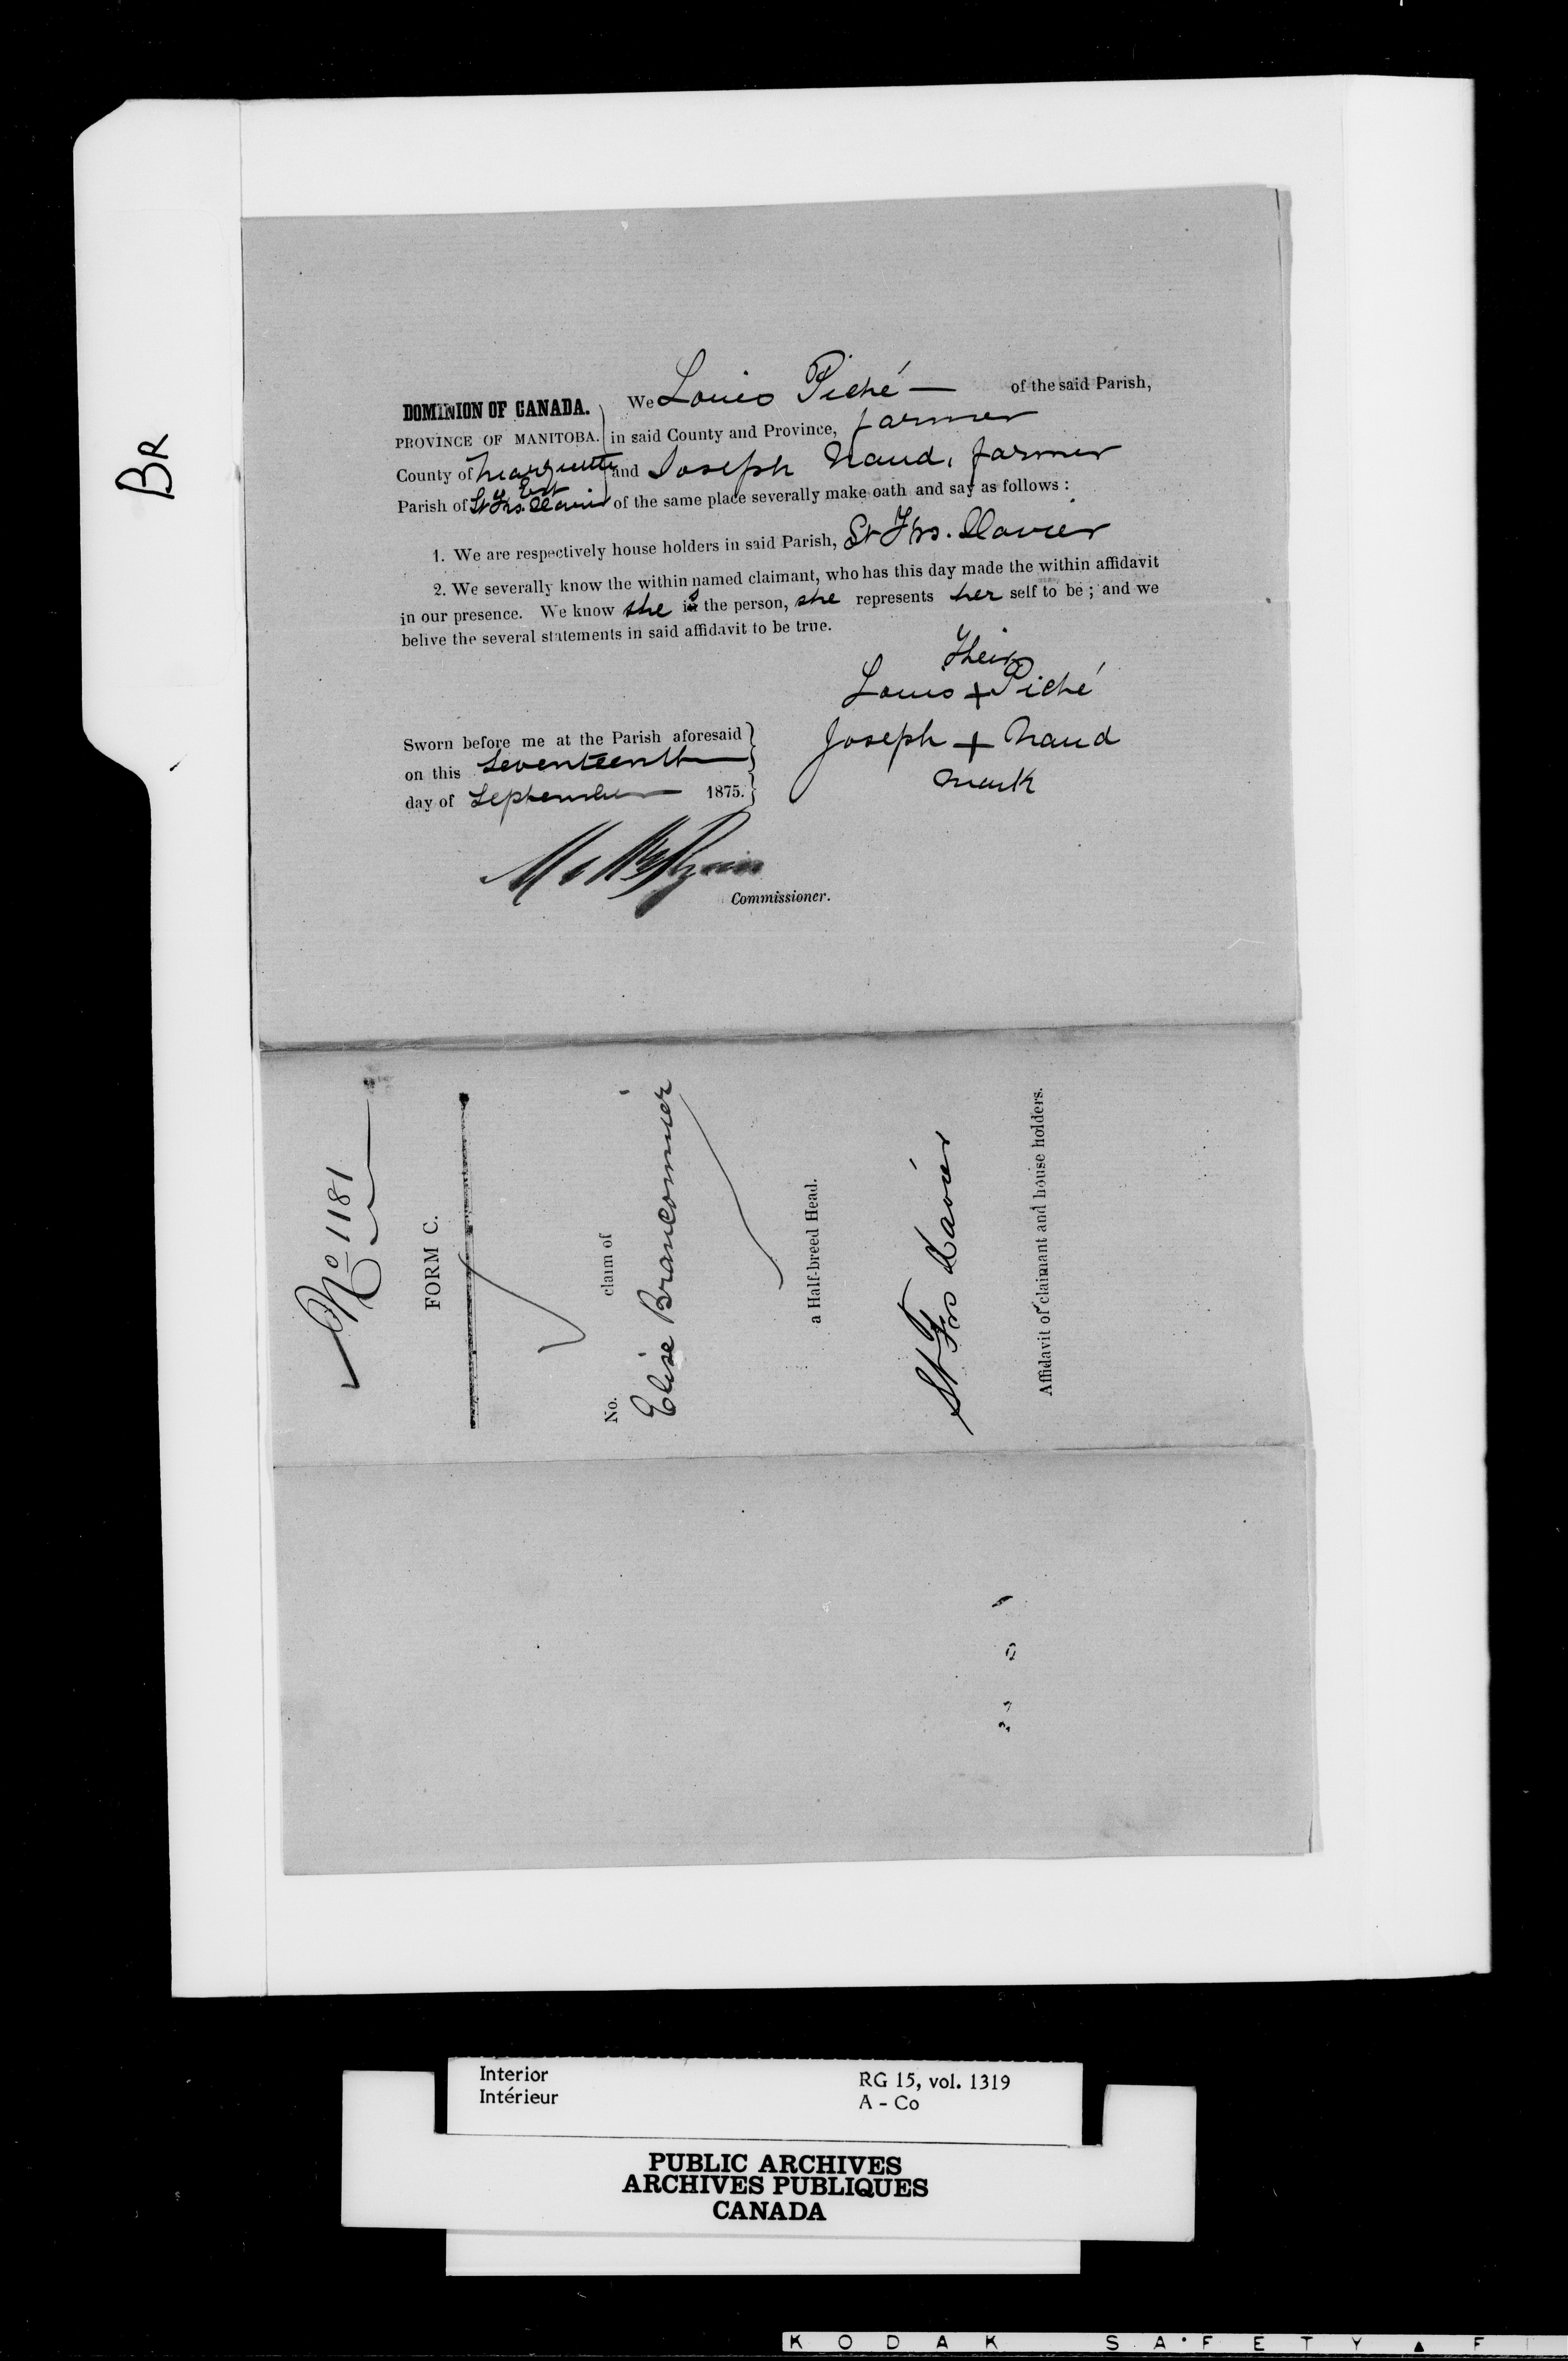 BR
DOMINION OF CANADA.
PROVINCE OF MANITOBA.
County of Marquette
Est
Parish of St Frs. Xavier
We Louis Piché — of the said Parish,
in said County and Province, farmer
and Joseph Naud, farmer
of the same place severally make oath and say as follows :
1. We are respectively house holders in said Parish, St Frs. Xavier
2. We severally know the within named claimant, who has this day made the within affidavit
in our presence. We know she is the person, she represents her self to be ; and we
belive the several statements in said affidavit to be true.
Their
Louis + Piché
Joseph + Naud
mark
Sworn before me at the Parish aforesaid
on this Seventeenth
day of September 1875.
Commissioner.
No 1181
FORM C.
No. claim of
Elise Branconnier
a Half-breed Head.
St Frs Xavier
Affidavit of claimant and house holders.
Interior
Intérieur
RG 15, vol. 1319
A - Co
PUBLIC ARCHIVES
ARCHIVES PUBLIQUES
CANADA
KODAK SAFETY F